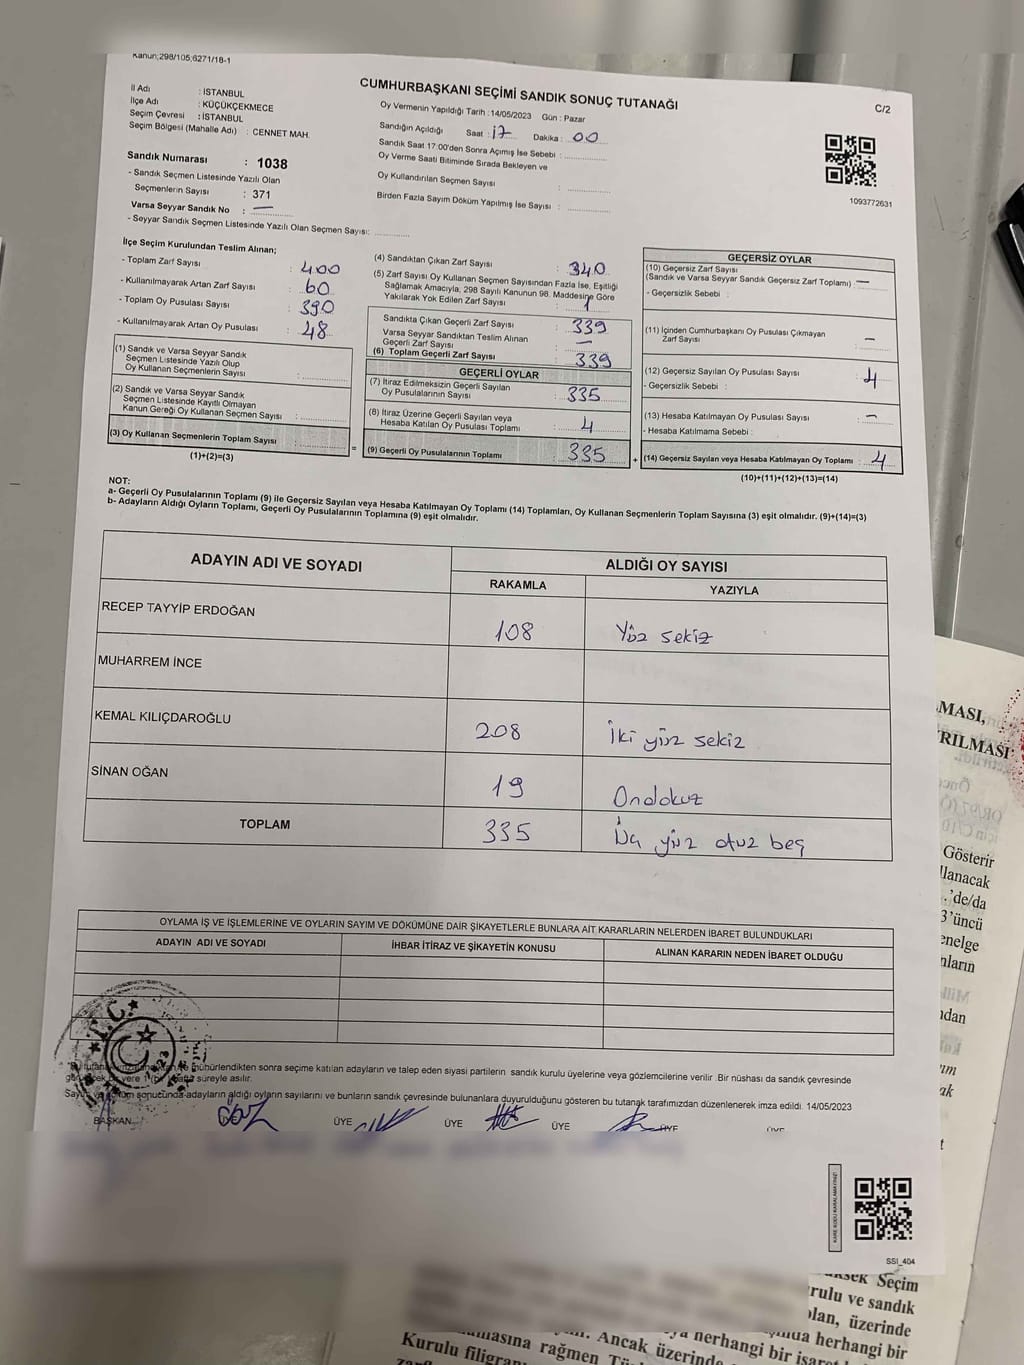 Kanun;298/105;6271/18-1
CUMHURBAŞKANI SEÇİMİ SANDIK SONUÇ TUTANAĞI
C/2
İl Adı : İSTANBUL
İlçe Adı : KÜÇÜKÇEKMECE
Seçim Çevresi : İSTANBUL
Seçim Bölgesi (Mahalle Adı) : CENNET MAH.
Sandık Numarası : 1038
- Sandık Seçmen Listesinde Yazılı Olan
Seçmenlerin Sayısı : 371
Varsa Seyyar Sandık No : —
- Seyyar Sandık Seçmen Listesinde Yazılı Olan Seçmen Sayısı:
Oy Vermenin Yapıldığı Tarih :14/05/2023 Gün : Pazar
Sandığın Açıldığı Saat : 17 Dakika : 00
Sandık Saat 17:00'den Sonra Açımış İse Sebebi :
Oy Verme Saati Bitiminde Sırada Bekleyen ve
Oy Kullandırılan Seçmen Sayısı :
Birden Fazla Sayım Döküm Yapılmış İse Sayısı :
1093772631
İlçe Seçim Kurulundan Teslim Alınan;
- Toplam Zarf Sayısı : 400
- Kullanılmayarak Artan Zarf Sayısı : 60
- Toplam Oy Pusulası Sayısı : 390
- Kullanılmayarak Artan Oy Pusulası : 48
(1) Sandık ve Varsa Seyyar Sandık
Seçmen Listesinde Yazılı Olup
Oy Kullanan Seçmenlerin Sayısı :
(2) Sandık ve Varsa Seyyar Sandık
Seçmen Listesinde Kayıtlı Olmayan
Kanun Gereği Oy Kullanan Seçmen Sayısı :
(3) Oy Kullanan Seçmenlerin Toplam Sayısı :
(1)+(2)=(3)
(4) Sandıktan Çıkan Zarf Sayısı : 340
(5) Zarf Sayısı Oy Kullanan Seçmen Sayısından Fazla İse, Eşitliği
Sağlamak Amacıyla, 298 Sayılı Kanunun 98. Maddesine Göre
Yakılarak Yok Edilen Zarf Sayısı : 1
Sandıkta Çıkan Geçerli Zarf Sayısı : 339
Varsa Seyyar Sandıktan Teslim Alınan
Geçerli Zarf Sayısı : —
(6) Toplam Geçerli Zarf Sayısı : 339
GEÇERLİ OYLAR
(7) İtiraz Edilmeksizin Geçerli Sayılan
Oy Pusulalarının Sayısı : 335
(8) İtiraz Üzerine Geçerli Sayılan veya
Hesaba Katılan Oy Pusulası Toplamı : 4
(9) Geçerli Oy Pusulalarının Toplamı : 335
GEÇERSİZ OYLAR
(10) Geçersiz Zarf Sayısı
(Sandık ve Varsa Seyyar Sandık Geçersiz Zarf Toplamı) : —
- Geçersizlik Sebebi :
(11) İçinden Cumhurbaşkanı Oy Pusulası Çıkmayan
Zarf Sayısı : —
(12) Geçersiz Sayılan Oy Pusulası Sayısı : 4
- Geçersizlik Sebebi :
(13) Hesaba Katılmayan Oy Pusulası Sayısı : —
- Hesaba Katılmama Sebebi :
(14) Geçersiz Sayılan veya Hesaba Katılmayan Oy Toplamı : 4
(10)+(11)+(12)+(13)=(14)
NOT:
a- Geçerli Oy Pusulalarının Toplamı (9) ile Geçersiz Sayılan veya Hesaba Katılmayan Oy Toplamı (14) Toplamları, Oy Kullanan Seçmenlerin Toplam Sayısına (3) eşit olmalıdır. (9)+(14)=(3)
b- Adayların Aldığı Oyların Toplamı, Geçerli Oy Pusulalarının Toplamına (9) eşit olmalıdır.
ADAYIN ADI VE SOYADI ALDIĞI OY SAYISI
RAKAMLA YAZIYLA
RECEP TAYYİP ERDOĞAN 108 Yüz sekiz
MUHARREM İNCE
KEMAL KILIÇDAROĞLU 208 İki yüz sekiz
SİNAN OĞAN 19 Ondokuz
TOPLAM 335 Üç yüz otuz beş
OYLAMA İŞ VE İŞLEMLERİNE VE OYLARIN SAYIM VE DÖKÜMÜNE DAİR ŞİKAYETLERLE BUNLARA AİT KARARLARIN NELERDEN İBARET BULUNDUKLARI
ADAYIN ADI VE SOYADI İHBAR İTİRAZ VE ŞİKAYETİN KONUSU ALINAN KARARIN NEDEN İBARET OLDUĞU
T.C.
mühürlendikten sonra seçime katılan adayların ve talep eden siyasi partilerin sandık kurulu üyelerine veya gözlemcilerine verilir .Bir nüshası da sandık çevresinde
yere 1 (bir) hafta süreyle asılır.
sonucunda adayların aldığı oyların sayılarını ve bunların sandık çevresinde bulunanlara duyurulduğunu gösteren bu tutanak tarafımızdan düzenlenerek imza edildi. 14/05/2023
BAŞKAN ÜYE ÜYE ÜYE ÜYE ÜYE
KARE KODU KARALAMAYINIZ!
SSI_404
MASI,
RILMASI
Gösterir
llanacak
.'de/da
3'üncü
enelge
nların
ndan
ım
ak
Seçim
rulu ve sandık
olan, üzerinde
herhangi bir
masına rağmen Ancak üzerinde herhangi bir
Kurulu